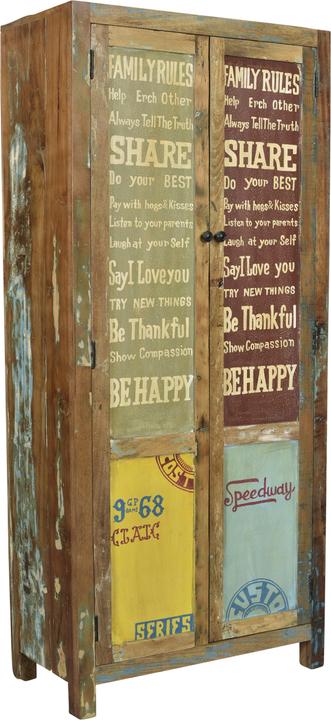 FAMILY RULES
Help Erch Other
Always Tell The Truth
SHARE
Do your BEST
Pay with hogs & Kisses
Listen to your parents
Laugh at your Self
Say I Love you
TRY NEW THINGS
Be Thankful
Show Compassion
BE HAPPY
FAMILY RULES
Help Erch Other
Always Tell The Truth
SHARE
Do your BEST
Pay with hogs & Kisses
Listen to your parents
Laugh at your Self
Say I Love you
TRY NEW THINGS
Be Thankful
Show Compassion
BE HAPPY
COST
9 GP 68
CLAIC
SERIES
Speedway
CUSTO